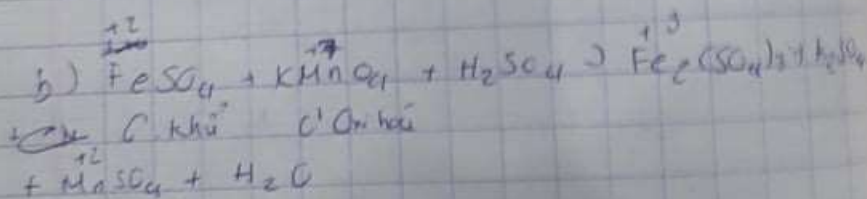 +2 +7 +3
b) FeSO4 + KMnO4 + H2SO4 → Fe2(SO4)3 + K2SO4
C khử C' Oxi hoá
+2
+ MnSO4 + H2O